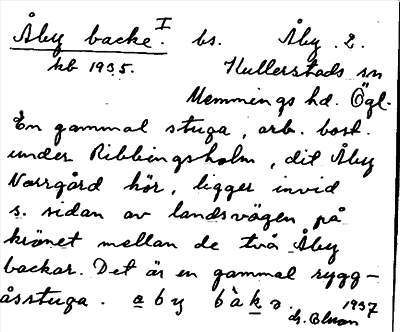 Åby backe. I bs. Åby. 2.
kb 1935. Hullerstads sn
Memmings hd. Ögl.
En gammal stuga, arb. bost.
under Ribbingsholm, dit Åby
Norrgård hör, ligger invid
s. sidan av landsvägen på
krönet mellan de två Åby
backar. Det är en gammal rygg-
åsstuga. a b y b à k ə. 1937